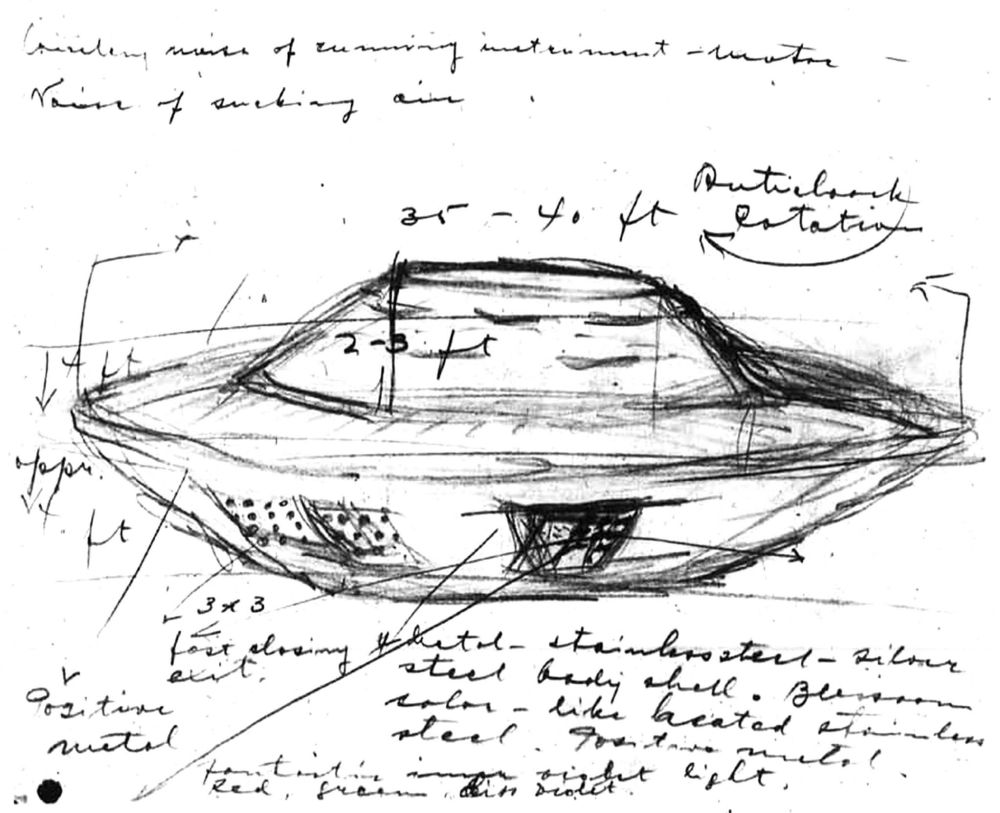 noise of running instrument - motor -
Noise of sucking air
Anticlock
Rotation
35 - 40 ft
2-3 ft
4 ft
appr.
4 ft
3 x 3
fast closing
exit.
Positive
metal
Metal - stainless steel - silver
steel body shell. Blossom
color - like heated stainless
steel. Positive metal
fantastic light,
Red, green, violet.